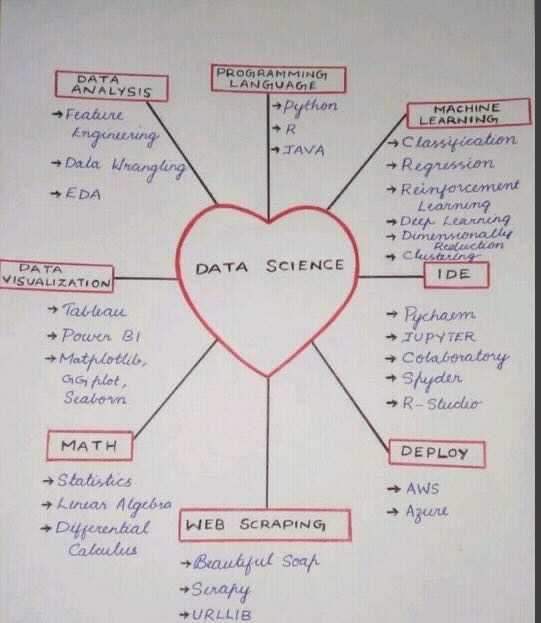 DATA
ANALYSIS
→ Feature
Engineering
→ Data Wrangling
→ EDA
PROGRAMMING
LANGUAGE
→ Python
→ R
→ JAVA
MACHINE
LEARNING
→ Classification
→ Regression
→ Reinforcement
Learning
→ Deep Learning
→ Dimensionally
Reduction
→ Clustering
DATA SCIENCE
DATA
VISUALIZATION
→ Tableau
→ Power BI
→ Matplotlib,
GGplot,
Seaborn
IDE
→ Pycharm
→ JUPYTER
→ Colaboratory
→ Spyder
→ R-Studio
MATH
→ Statistics
→ Linear Algebra
→ Differential
Calculus
DEPLOY
→ AWS
→ Azure
WEB SCRAPING
→ Beautiful Soap
→ Scrapy
→ URLLIB